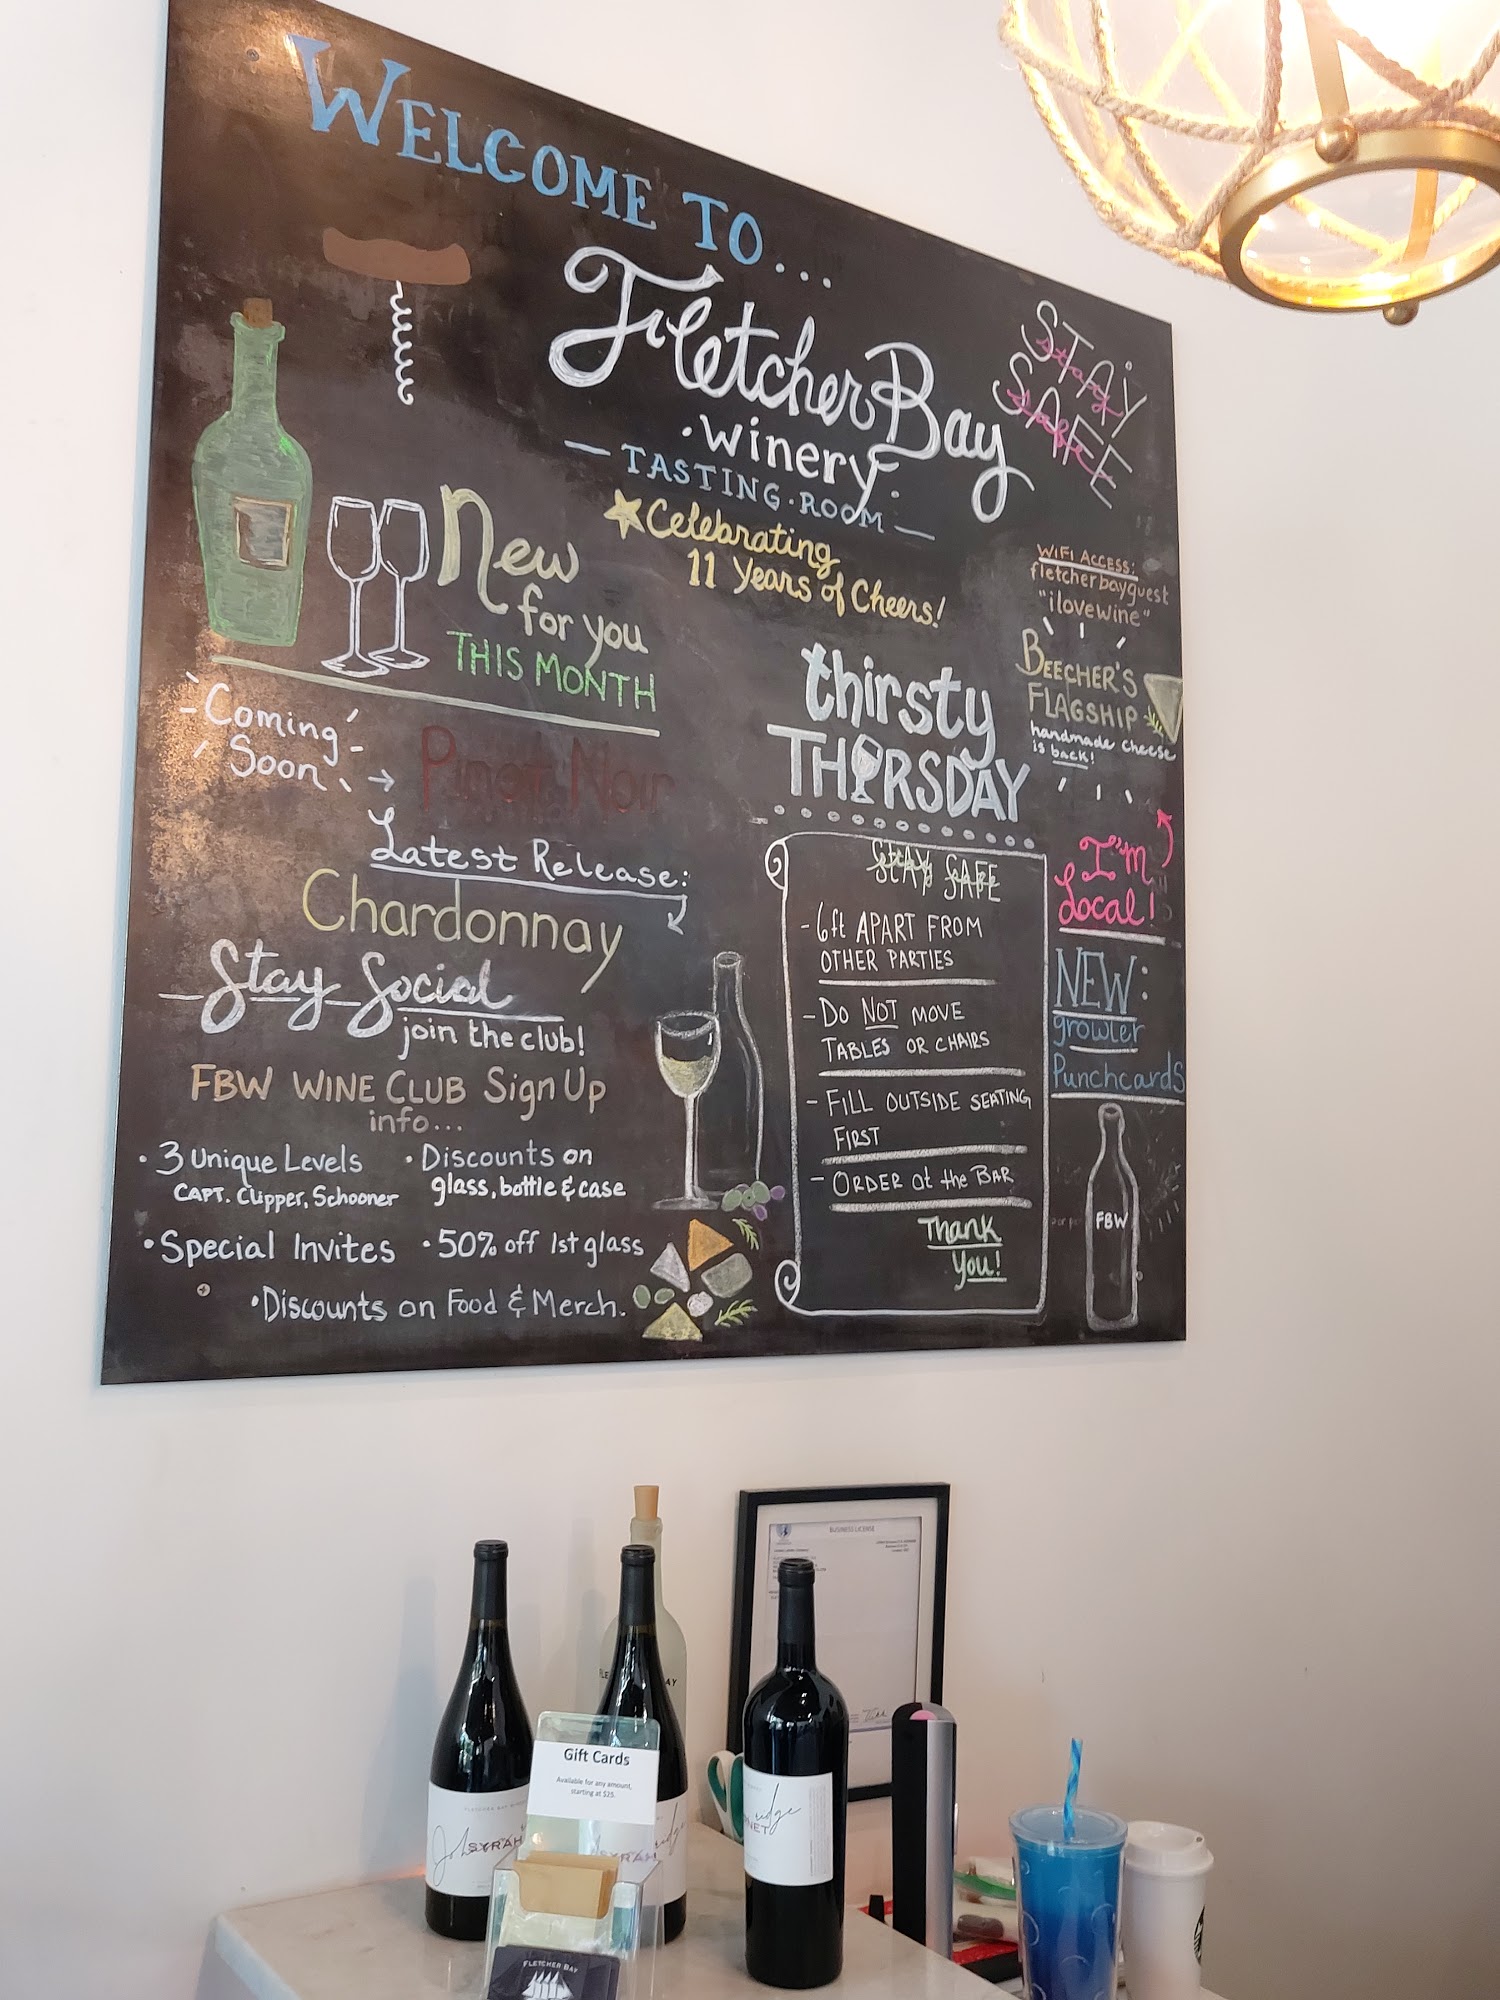 WELCOME TO...
Fletcher Bay
· Winery ·
— TASTING · ROOM —
Celebrating
11 Years of Cheers!
STAY
SAFE
WIFI ACCESS:
fletcherbayguest
"ilovewine"
BEECHER'S
FLAGSHIP
handmade cheese
is back!
I'm
Local!
NEW:
growler
Punchcards
FBW
New
for you
THIS MONTH
Coming
Soon →
Pinot Noir
Latest Release:
Chardonnay
Stay Social
join the club!
FBW WINE CLUB Sign Up
info...
· 3 Unique Levels
CAPT. Clipper, Schooner
· Discounts on
glass, bottle & case
· Special Invites
· 50% off 1st glass
· Discounts on Food & Merch.
thirsty
THURSDAY
STAY SAFE
- 6ft APART FROM
OTHER PARTIES
- DO NOT MOVE
TABLES OR CHAIRS
- FILL OUTSIDE SEATING
FIRST
- ORDER at the BAR
Thank
You!
BUSINESS LICENSE
Gift Cards
Available for any amount,
starting at $25.
FLETCHER BAY
SYRAH
SYRAH
FLETCHER BAY